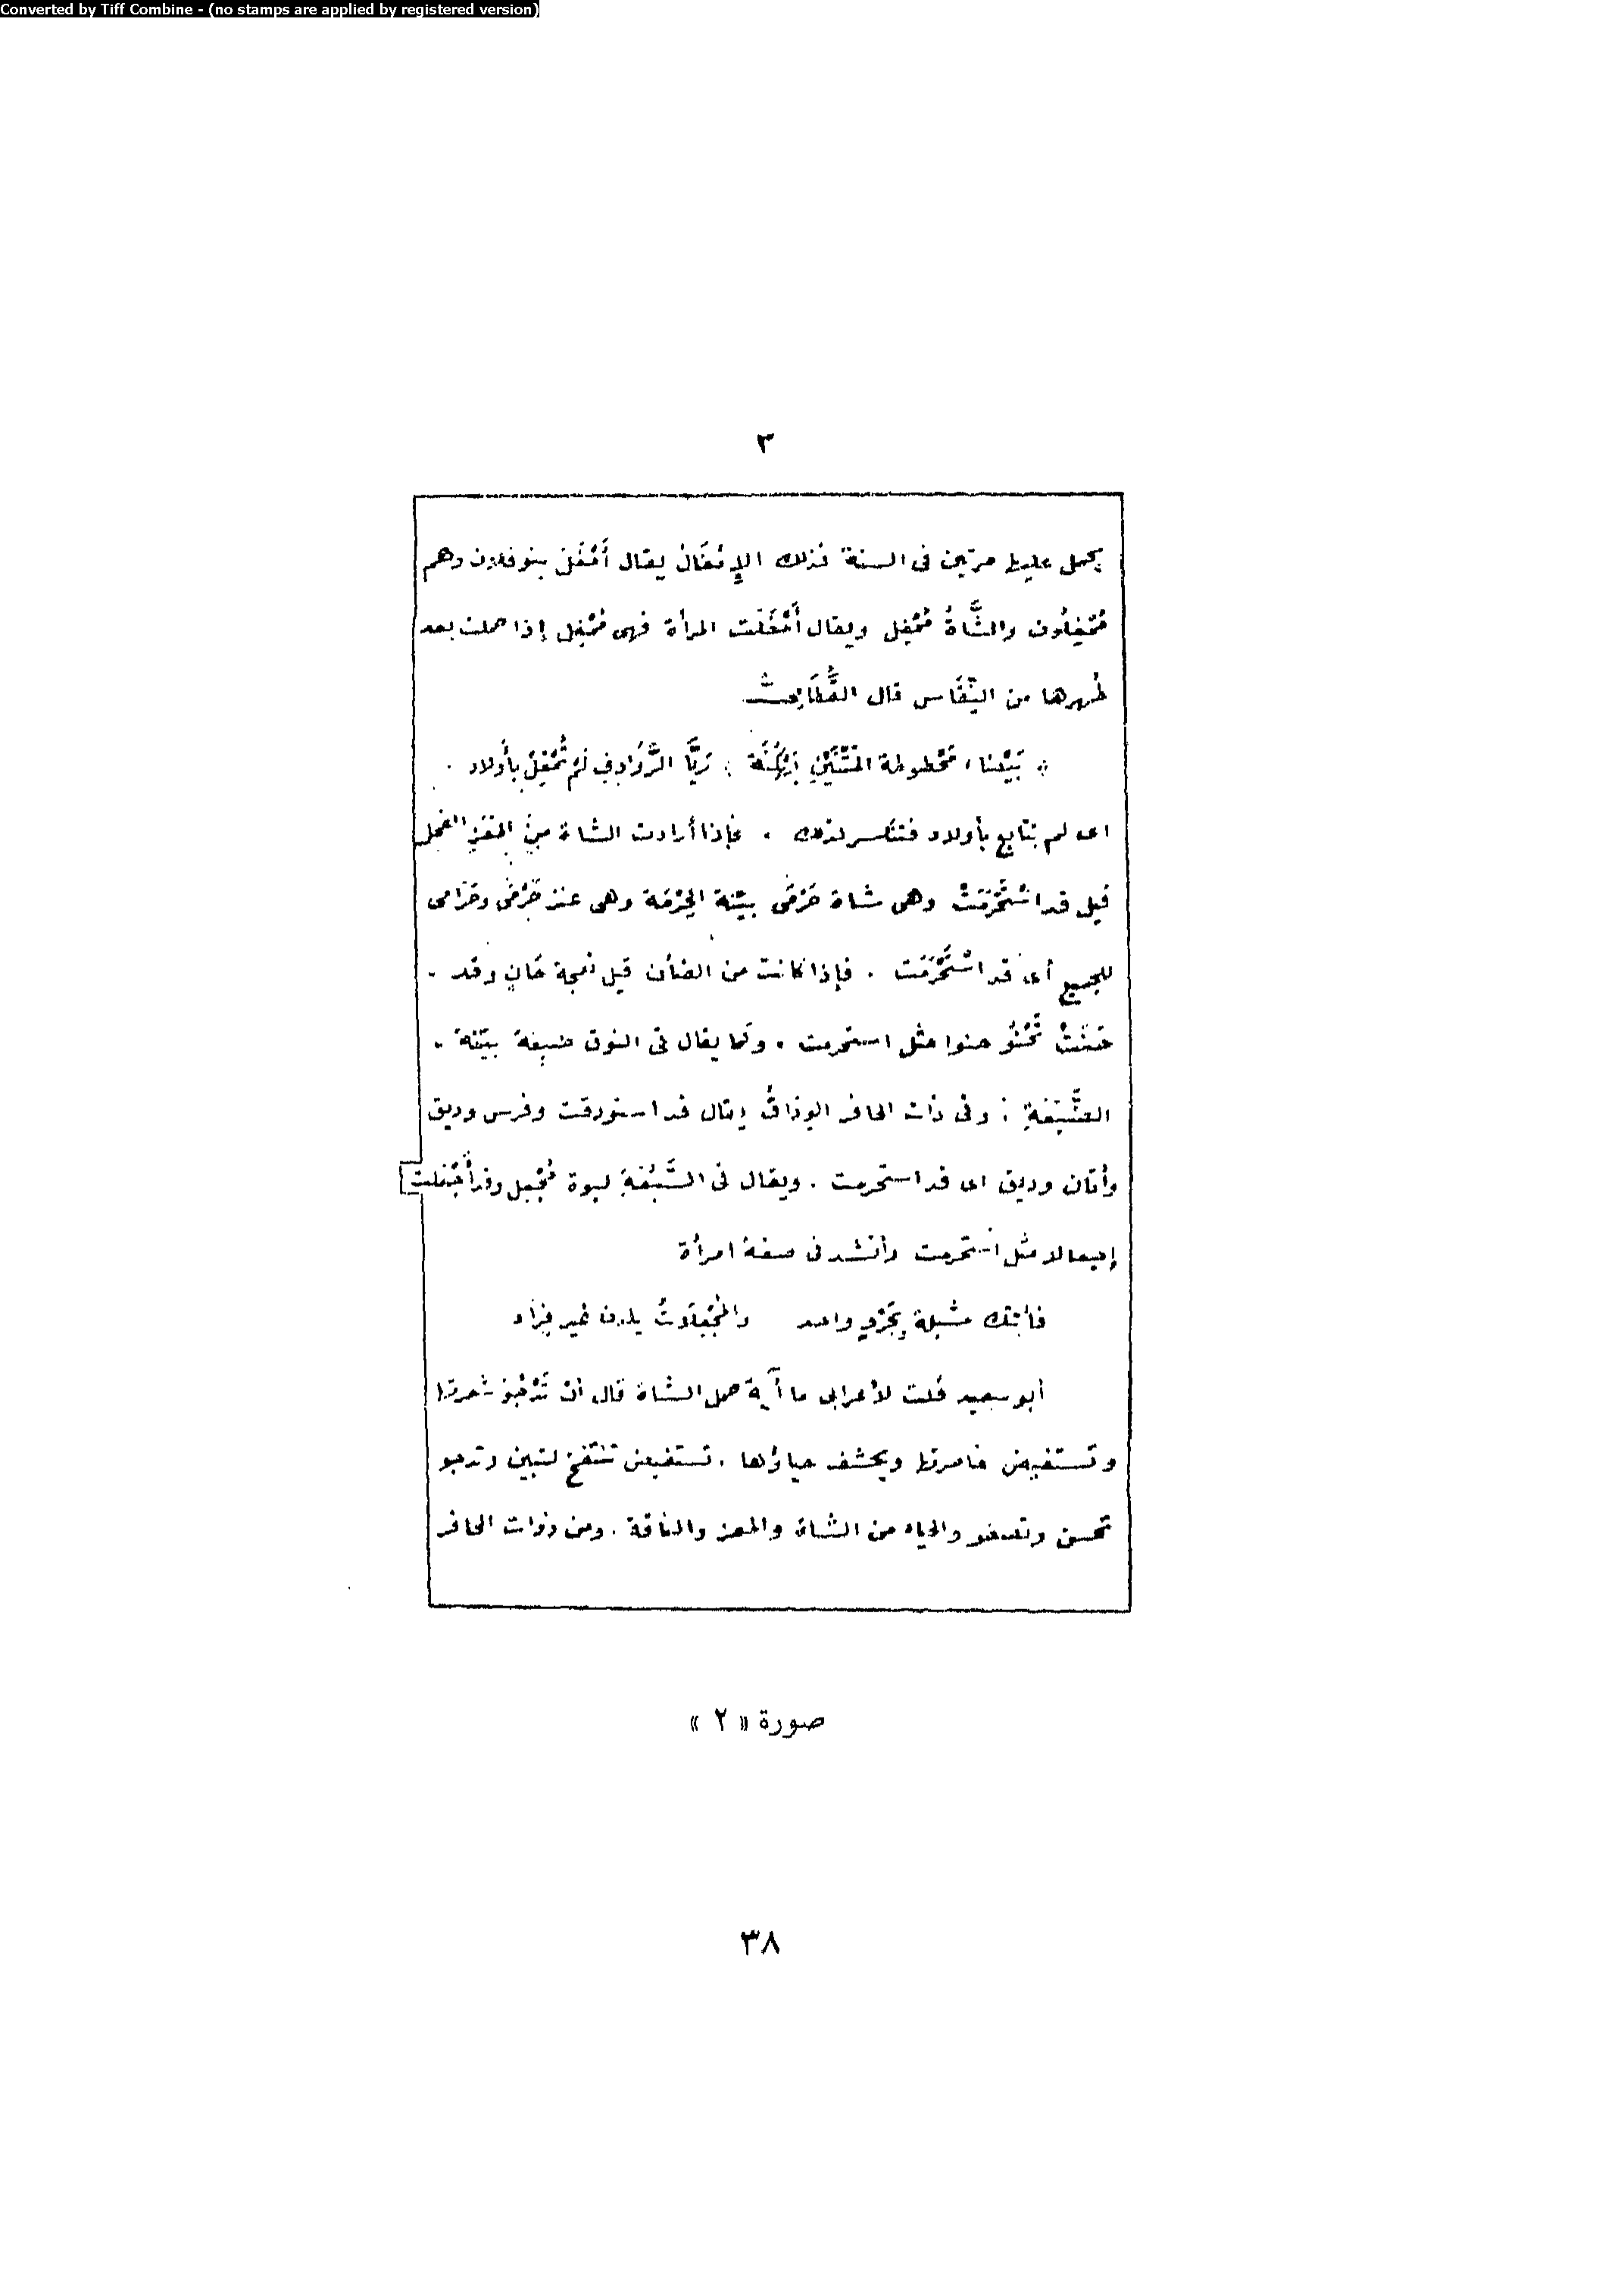 Converted by Tiff Combine - (no stamps are applied by registered version)
٣
يحمل عليها مرتين فى السنة فذلك الإِمْغَالُ يقال أَمْغَلَ بنو فلان وهم
مُمْغِلُون والشَّاةُ مُمْغِل ويقال أَمْغَلَت المرأة فهى مُمْغِل إذا حملت بعد
طُهرها من النِّفَاس قال القُطَامِىُّ
بَيْضاء مَحْطوطة المَتْنَيْنِ بَهْكَنَة رَيَّا الرَّوَادِفِ لَمْ تُمْغِلْ بأَولاد .
اى لم تتابع بأولاد فتنكسر لذلك . فإذا أرادت الشاة مِنَ المَعَزِ الفحل
قيل قد اسْتَحْرَمَتْ وهى شاة حَرْمَى بيّنة الحِرْمَة وهى عنز حَرْمَى وحَرَامى
للجميع أى قد اسْتَحْرَمَت . فإذا كانت من الضأن قيل نعجة حَانٍ وقد .
حَنَتْ تَحْنُو حنوا مثل استحرمت . وكما يقال فى النوق ضبِعَة بيّنة .
الضَّبَعَةِ : وفى ذات الحافر الوِدَاقُ يقال قد استودقت وفرس وديق
وأتان وديق اى قد استحرمت . ويقال فى السَّبُعَةِ لبوة مُجْعِل وقد أَجْعَلت
إجعالا مثل استحرمت وأنشد فى صفة امرأة
فأتتك مشبلة بِجَرْوٍ واحد والمُجْعِلاَتُ يلدن غير فِرَاد
أبو سعيد قلت لأعرابى ما آية حمل الشاة قال أن تَدْجُوَ شعرتها
وتستفيض خاصرتها ويحشف حياؤها . تستفيض تَنْتَفِخ لتبين وتدجو
تحسن وتصفو والحياء من الشاة والمعز والناقة . ومن ذوات الحافر
صورة « ٢ »
٣٨